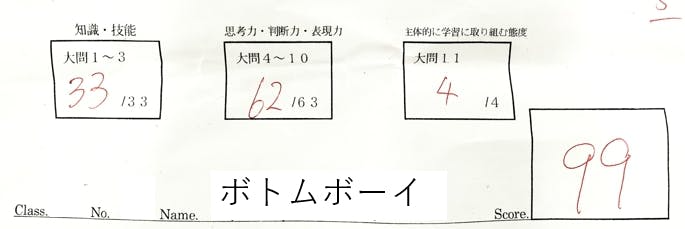 知識・技能 思考力・判断力・表現力 主体的に学習に取り組む態度
大問1~3 大問4~10 大問11
33 /33 62 /63 4 /4
99
ボトムボーイ
Class. No. Name. Score.